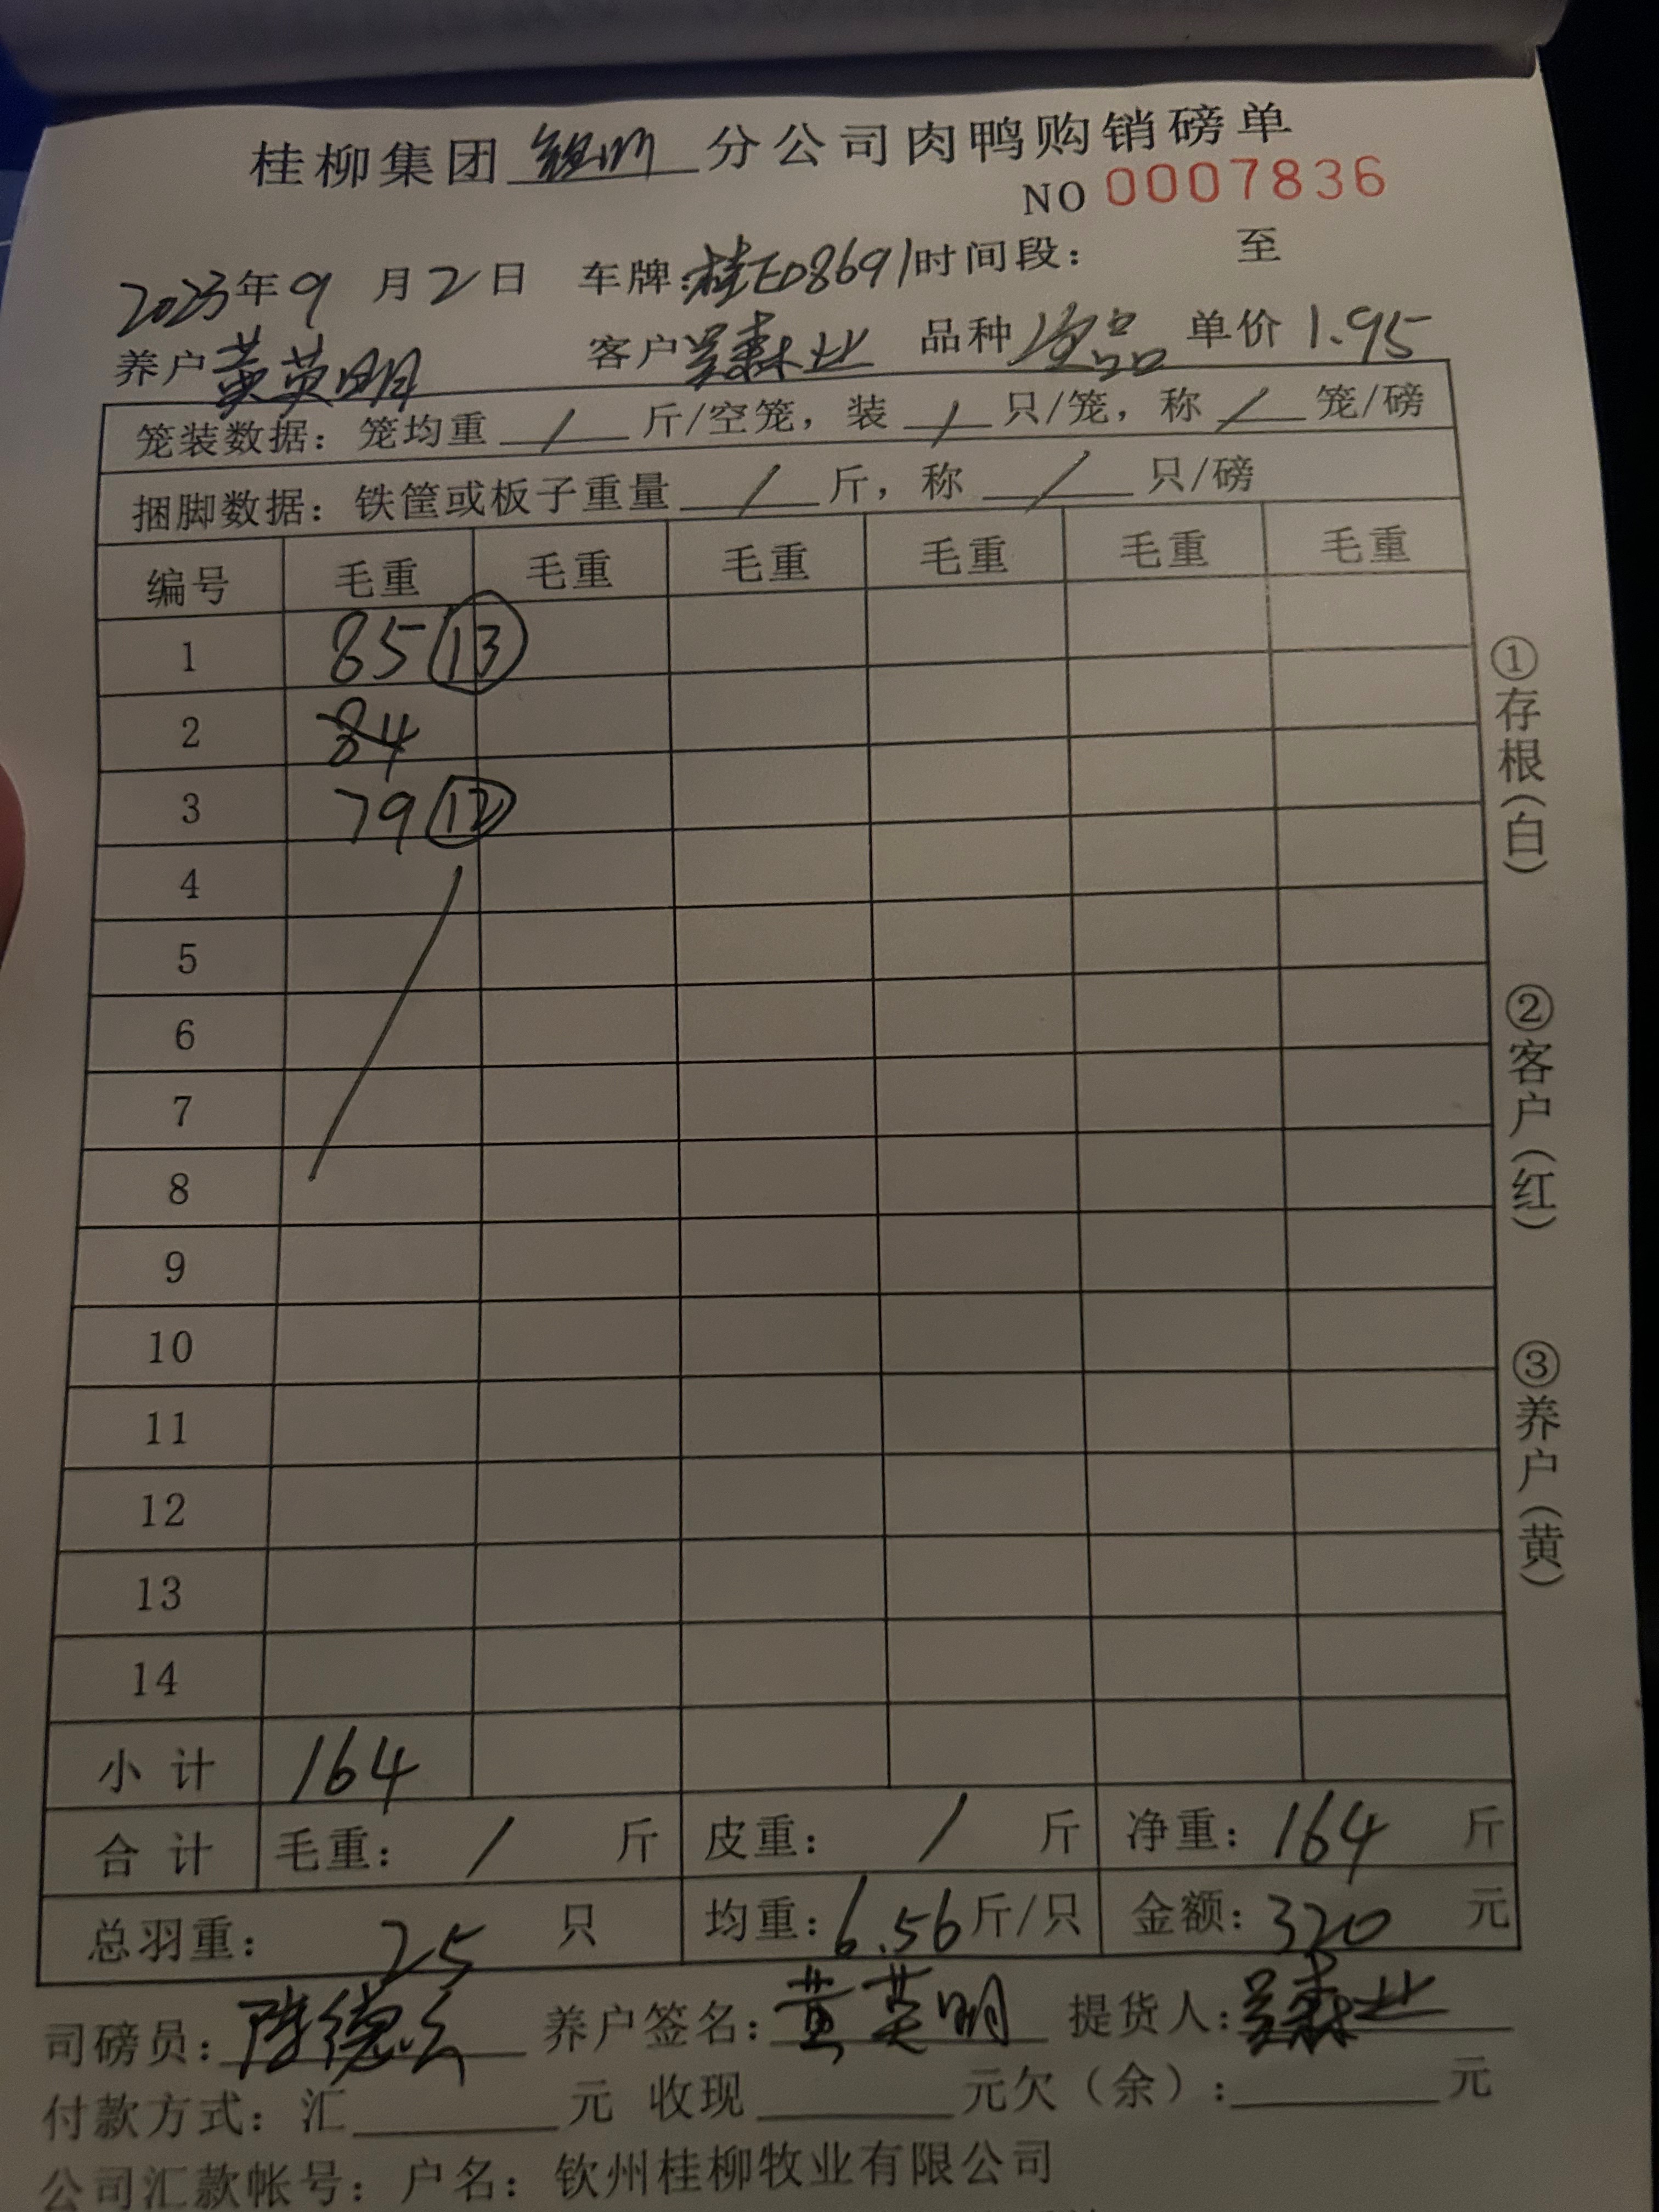 桂柳集团 钦州 分公司肉鸭购销磅单
NO 0007836
2023年9月2日 车牌:桂E08691 时间段: 至
养户 黄英明 客户 吴森业 品种 次品 单价 1.95
笼装数据: 笼均重 / 斤/空笼, 装 / 只/笼, 称 / 笼/磅
捆脚数据: 铁筐或板子重量 / 斤, 称 / 只/磅
编号 毛重 毛重 毛重 毛重 毛重 毛重
1 85 ⑬
2 84
3 79 ⑫
4
5
6
7
8
9
10
11
12
13
14
小计 164
合计 毛重: / 斤 皮重: / 斤 净重: 164 斤
总羽重: 25 只 均重: 6.56 斤/只 金额: 320 元
司磅员: 陈德 养户签名: 黄英明 提货人: 吴森业
付款方式: 汇 元 收现 元欠(余): 元
公司汇款帐号: 户名: 钦州桂柳牧业有限公司
①存根(白)
②客户(红)
③养户(黄)